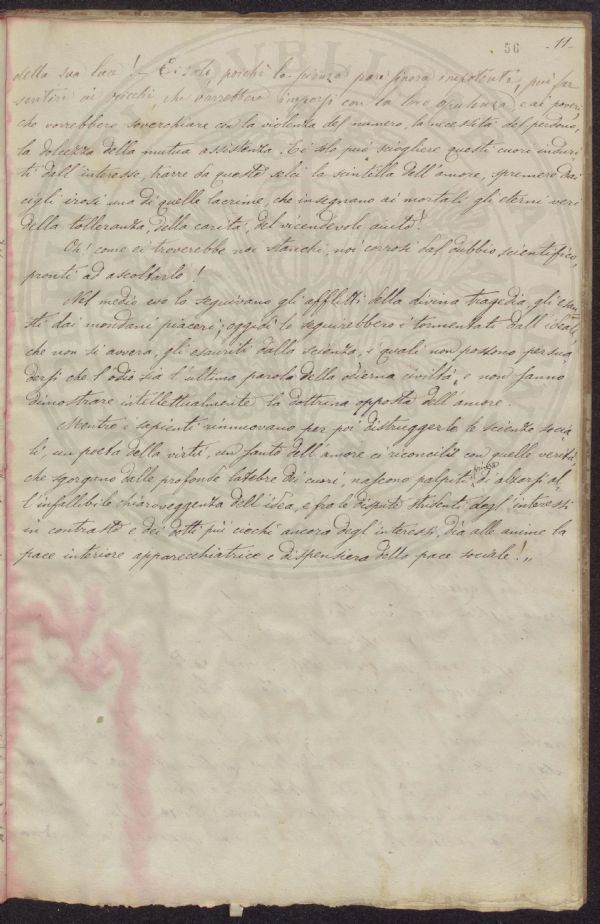 56 -11-
della sua luce! - Ei solo, poichè la scienza pare finora impotente, può far
sentire ai ricchi, che vorrebbero imporsi con la loro opulenza e ai poveri,
che vorrebbero soverchiare con la violenza del numero, la necessità del perdono,
la dolcezza della mutua assistenza. Ei solo può sciogliere questi cuori induri
ti dall'interesse, trarre da queste selci la scintilla dell'amore, spremere dai
cigli irosi una di quelle lacrime, che insegnano ai mortali gli eterni veri
della tolleranza, della carità, del vicendevole aiuto!
Oh! come ci troverebbe noi stanchi, noi corrosi dal dubbio scientifico,
pronti ad ascoltarlo!
Nel medio evo lo seguivano gli afflitti della divina tragedia, gli esau
sti dai mondani piaceri; oggidì lo seguirebbero i tormentati dall'ideale,
che non si avvera, gli esauriti dalla scienza, i quali non possono persua
dersi che l'odio sia l'ultima parola della odierna civiltà, e non sanno
dimostrare intellettualmente la dottrina opposta dell'amore.
Mentre i sapienti rinnuovano per poi distruggerle le scienze socia
li, un poeta della virtù, un santo dell'amore ci riconcilii con quelle verità,
che sgorgano dalle profonde latebre dei cuori, nascono palpiti di alzarsi al
l'infallibile chiaroveggenza dell'idea, e fra le dispute stridenti degl'interessi
in contrasto e dei dotti più ciechi ancora degl'interessi, dia alle anime la
pace interiore apparecchiatrice e dispensiera della pace sociale!„